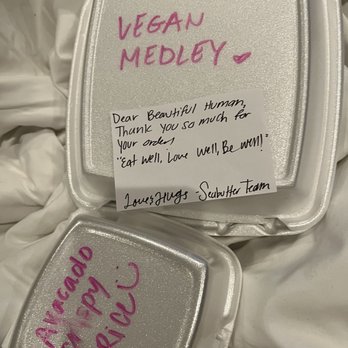 VEGAN
MEDLEY
Dear Beautiful Human,
Thank you so much for
your order,
"Eat well, Love Well, Be Well!"
Love & Hugs - Seabutter Team
Avacado
Crispy
Rice